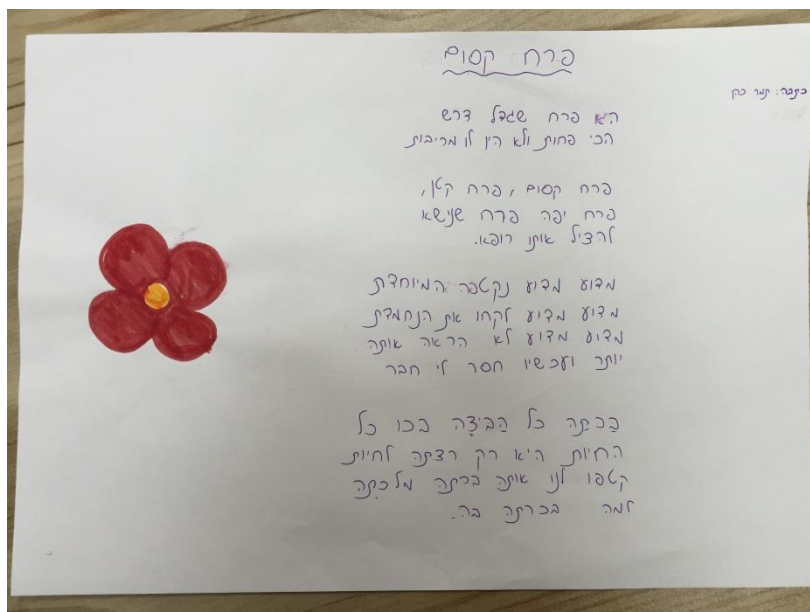 פרח קסום
כתבה: תמר כהן
היא פרח שגדל דרש
הכי פחות ולא הין לו מריבות
פרח קסום, פרח קטן,
פרח יפה פרח שנישא
להציל אותו רופא.
מדוע מדוע נקטפה המיוחדת
מדוע מדוע לקחו את הנחמדת
מדוע מדוע לא הראה אותה
יותר ועכשיו חסר לי חבר
בכתה כל הביצה בכו כל
החיות היא רק רצתה לחיות
קטפו לנו אותה ברתה מלכתה
למה בכרתה בה.